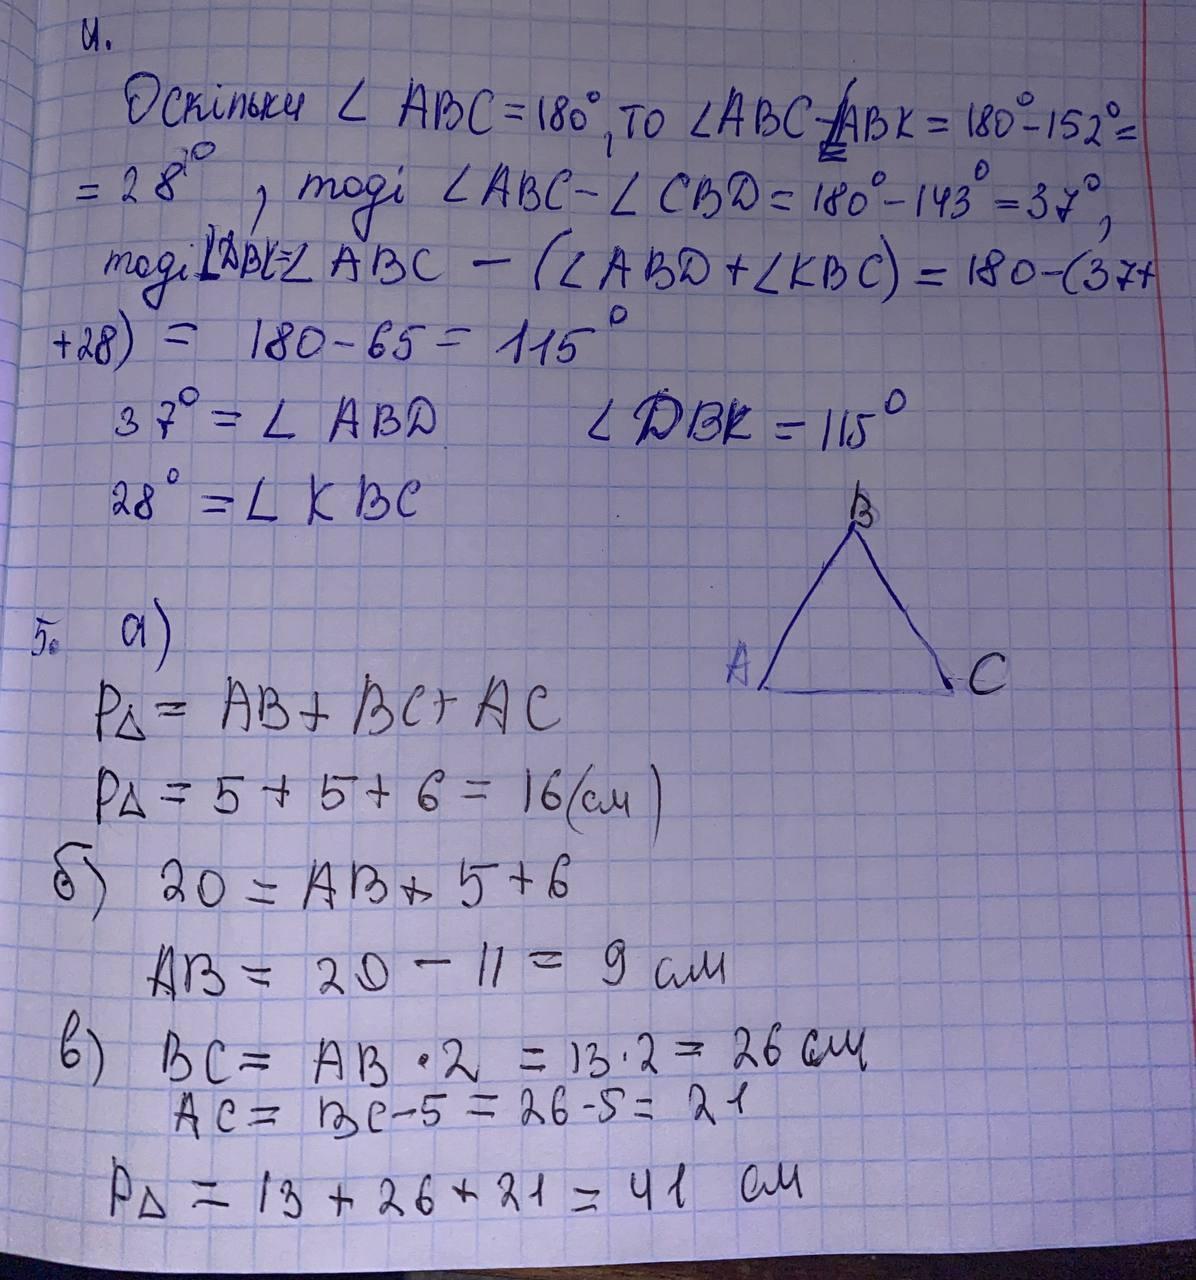 4.
Оскільки ∠ ABC = 180°, то ∠ABC - ∠ABK = 180° - 152° =
= 28°, тоді ∠ABC - ∠CBD = 180° - 143° = 37°,
тоді ∠DBK = ∠ABC - (∠ABD + ∠KBC) = 180 - (37 +
+ 28) = 180 - 65 = 115°
37° = ∠ ABD ∠ DBK = 115°
28° = ∠ KBC
B
A C
5. а)
P∆ = AB + BC + AC
P∆ = 5 + 5 + 6 = 16 (см)
б) 20 = AB + 5 + 6
AB = 20 - 11 = 9 см
в) BC = AB · 2 = 13 · 2 = 26 см
AC = BC - 5 = 26 - 5 = 21
P∆ = 13 + 26 + 21 = 41 см